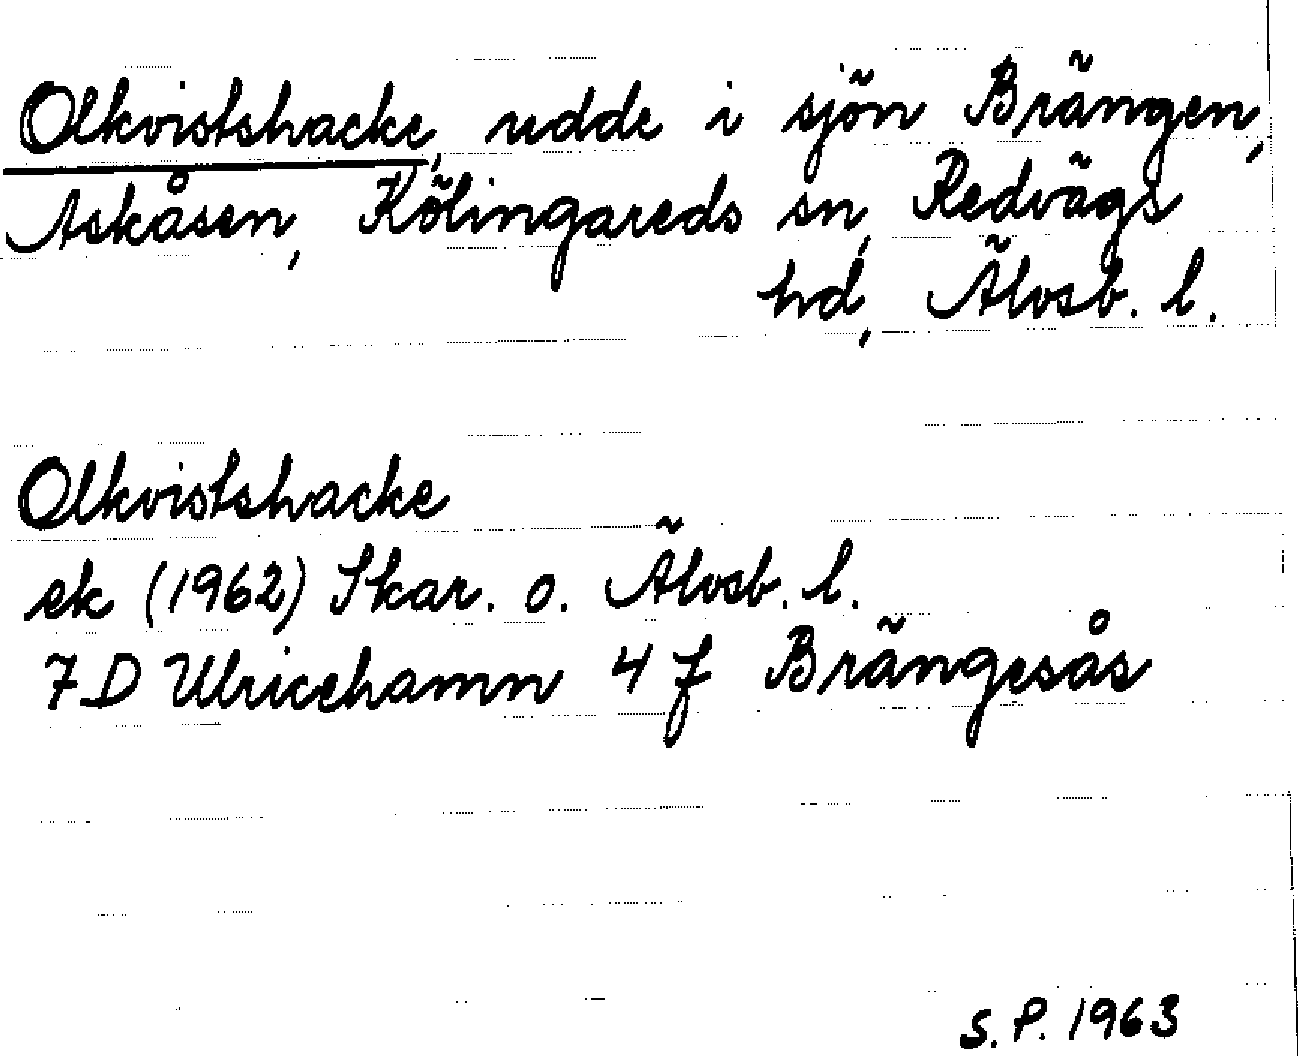 Olkvistshacke, udde i sjön Brängen,
Askåsen, Kölingareds sn, Redvägs
hd, Älvsb. l.
Olkvistshacke
ek (1962) Skar. o. Älvsb. l.
7D Ulricehamn 4 f Brängesås
S.P. 1963